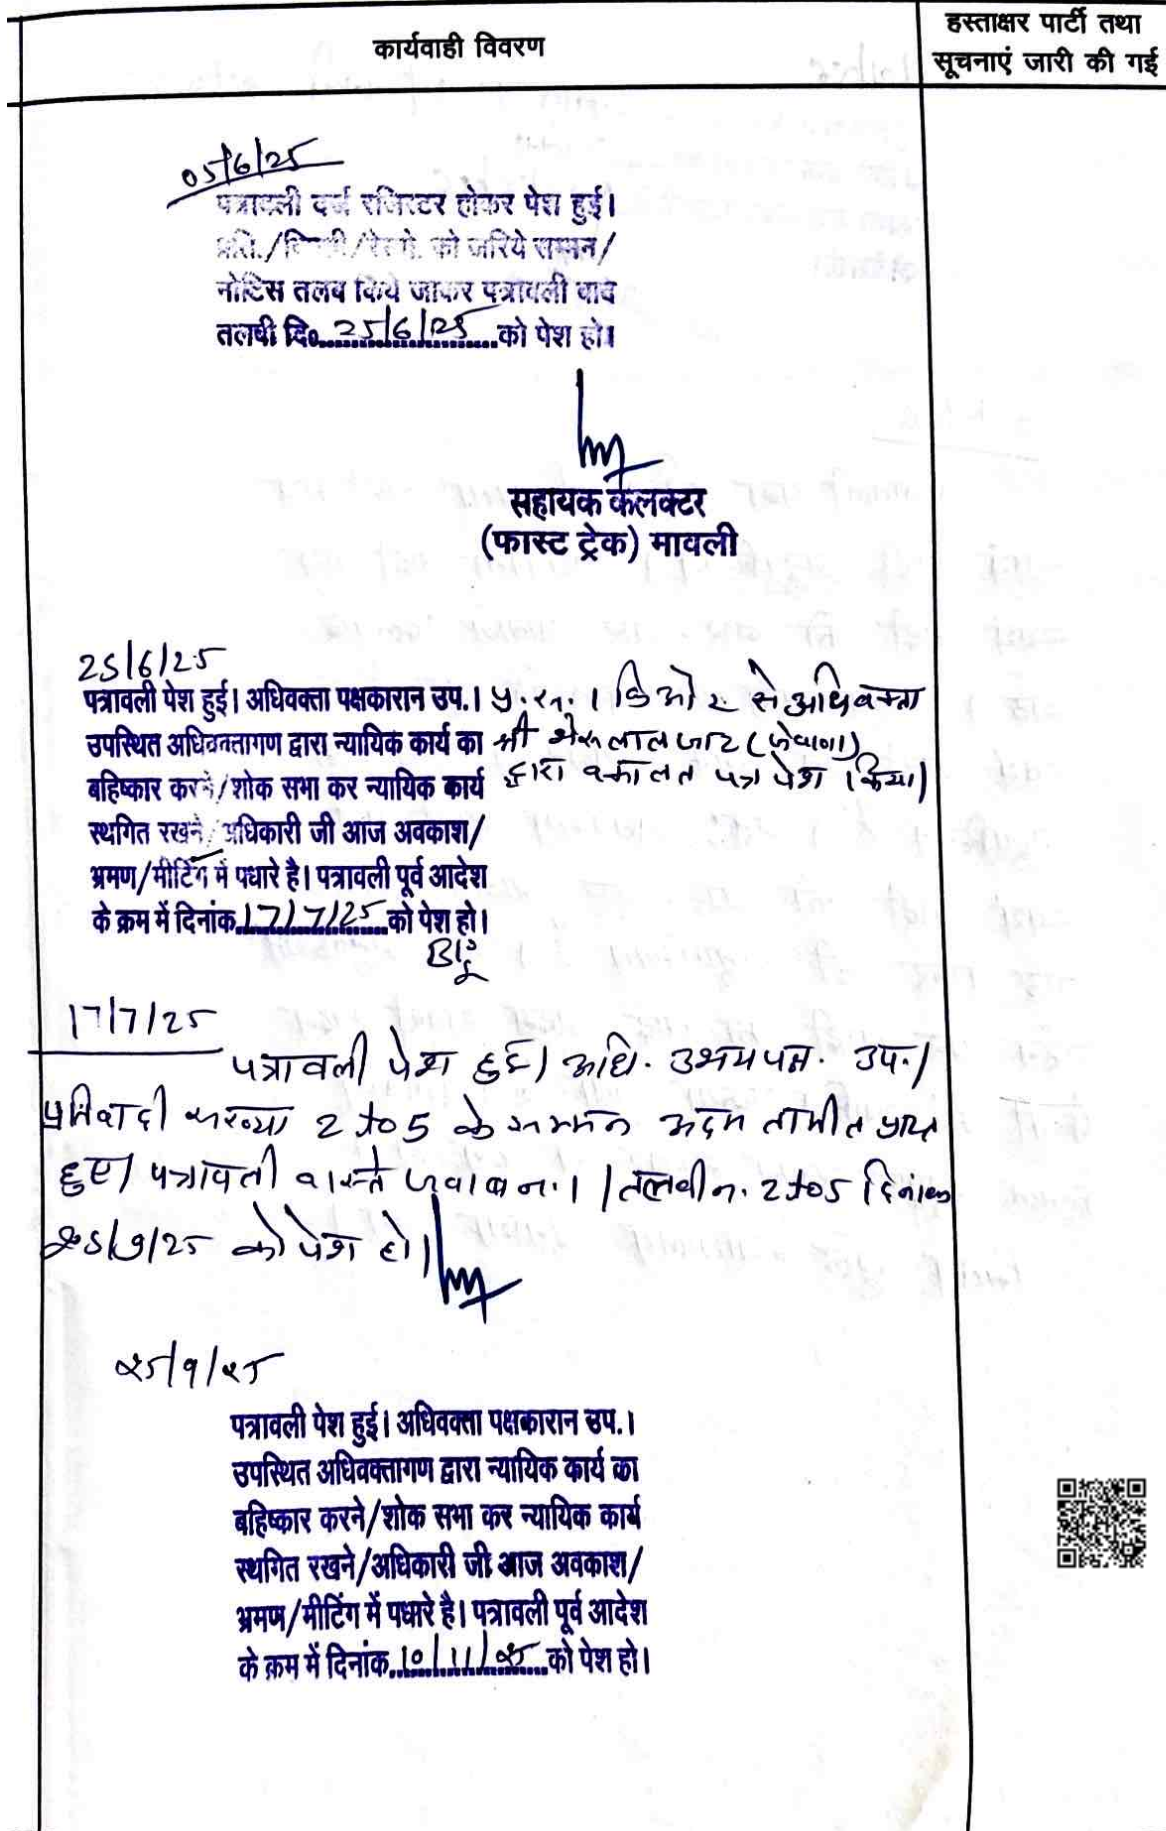 कार्यवाही विवरण
हस्ताक्षर पार्टी तथा
सूचनाएं जारी की गई
05/6/25
पत्रावली दर्ज रजिस्टर होकर पेश हुई।
को जरिये सम्मन/
नोटिस तलब किये जाकर पत्रावली वास्ते
तलबी दि० 25/6/25 को पेश हो।
सहायक कलक्टर
(फास्ट ट्रेक) मावली
25/6/25
पत्रावली पेश हुई। अधिवक्ता पक्षकारान उप.। से अधिवक्ता
उपस्थित अधिवक्तागण द्वारा न्यायिक कार्य का श्री भेरूलाल जाट
बहिष्कार करने/शोक सभा कर न्यायिक कार्य द्वारा वकालत पत्र पेश किया।
स्थगित रखने/अधिकारी जी आज अवकाश/
भ्रमण/मीटिंग में पधारे है। पत्रावली पूर्व आदेश
के क्रम में दिनांक 17/7/25 को पेश हो।
17/7/25
पत्रावली पेश हुई। अधि. उभयपक्ष. उप.।
प्रतिवादी संख्या 2 to 5 के सम्मन अदम तामील प्राप्त
हुए। पत्रावली वास्ते जवाब न. 1 / तलबी न. 2 to 5 दिनांक
25/9/25 को पेश हो।
25/9/25
पत्रावली पेश हुई। अधिवक्ता पक्षकारान उप.।
उपस्थित अधिवक्तागण द्वारा न्यायिक कार्य का
बहिष्कार करने/शोक सभा कर न्यायिक कार्य
स्थगित रखने/अधिकारी जी आज अवकाश/
भ्रमण/मीटिंग में पधारे है। पत्रावली पूर्व आदेश
के क्रम में दिनांक 10/11/25 को पेश हो।